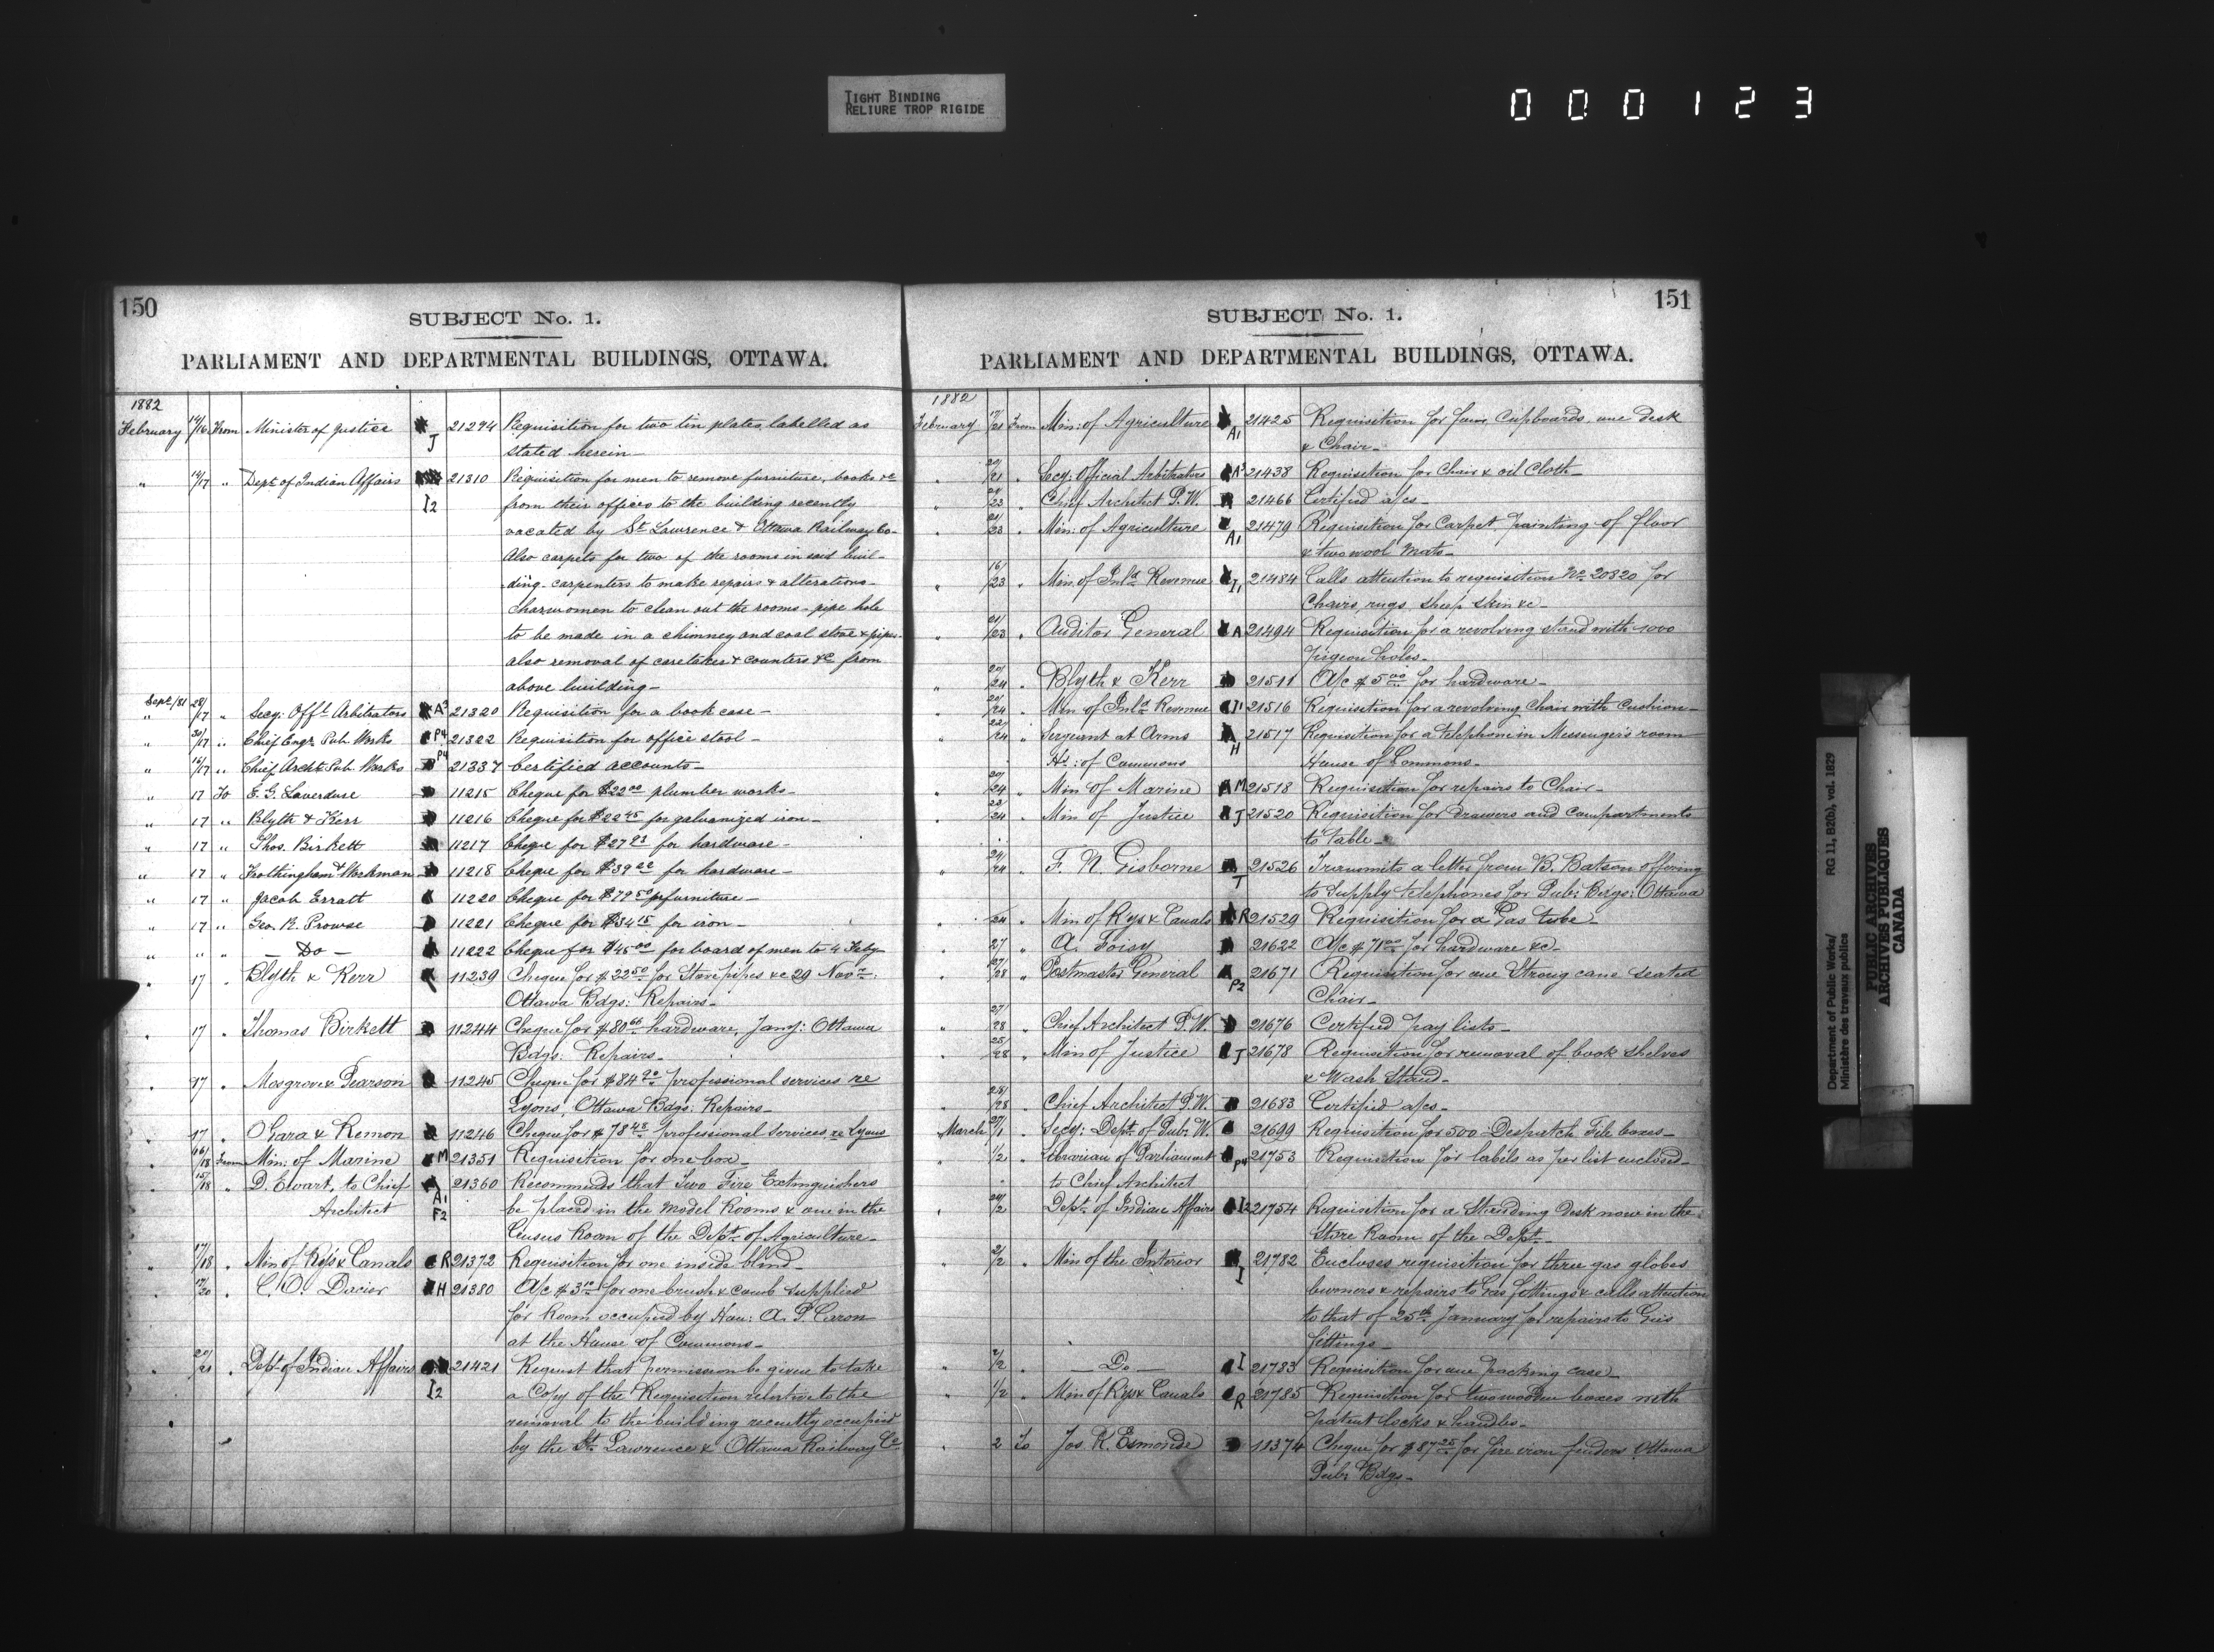 TIGHT BINDING
RELIURE TROP RIGIDE
000123
150
SUBJECT No. 1.
PARLIAMENT AND DEPARTMENTAL BUILDINGS, OTTAWA.
1882
February 14/16 From Minister of Justice J 21294 Requisition for two tin plates, labelled as
stated herein—
" 14/17 " Dept. of Indian Affairs 21310 Requisition for men to remove furniture, books &c
I2 from their offices to the building recently
vacated by St Lawrence & Ottawa Railway Co—
Also carpets for two of the rooms in said buil-
ding- carpenters to make repairs & alterations—
charwomen to clean out the rooms - pipe hole
to be made in a chimney and coal stove & pipes-
also removal of caretaker & counters &c from
above building—
Sept/81
" 28/17 " Secy: Offl. Arbitrators A3 21320 Requisition for a book case—
" 30/17 " Chief Engr. Pub. Works P4 21322 Requisition for office stool—
" 16/17 " Chief Archt. Pub. Works P4 21337 Certified accounts—
" 17 To E. G. Laverdure 11215 Cheque for $22.00 plumber works—
" 17 " Blyth & Kerr 11216 Cheque for $22.45 for galvanized iron—
" 17 " Thos. Birkett 11217 Cheque for $27.93 for hardware—
" 17 " Frothingham & Workman 11218 Cheque for $39.22 for hardware—
" 17 " Jacob Erratt 11220 Cheque for $79.50 furniture—
" 17 " Geo. R. Prowse 11221 Cheque for $34.15 for iron—
" " " — Do — 11222 Cheque for $45.00 for board of men to 4 Feby
" 17 " Blyth & Kerr 11239 Cheque for $22.50 for Stovepipes &c 29 Novr:
Ottawa Bdgs: Repairs—
" 17 " Thomas Birkett 11244 Cheque for $80.66 hardware, Jany: Ottawa
Bdgs: Repairs—
" 17 " Mosgrove & Pearson 11245 Cheque for $84.90 professional services re
Lyons, Ottawa Bdgs: Repairs—
" 17 " O'Gara & Remon 11246 Cheque for $78.48 professional services, re Lyons
" 16/18 From Min: of Marine M 21351 Requisition for one box—
" 15/18 " D. Ewart, to Chief 21360 Recommends that Two Fire Extinguishers
Architect A1 F2 be placed in the Model Rooms & one in the
Census Room of the Dept. of Agriculture—
" 17/18 " Min of Rys & Canals R 21372 Requisition for one inside blind—
" 17/20 " C. O. Dacier H 21380 A/c $3.10 for one brush & comb supplied
for Room occupied by Hon: A. P. Caron
at the House of Commons—
" 20/21 " Dept. of Indian Affairs 21421 Request that permission be given to take
I2 a Copy of the Requisition relative to the
removal to the building recently occupied
by the St. Lawrence & Ottawa Railway Co
151
SUBJECT No. 1.
PARLIAMENT AND DEPARTMENTAL BUILDINGS, OTTAWA.
1882
February 17/21 From Min: of Agriculture A1 21425 Requisition for four Cupboards, one desk
& Chair—
" 20/21 " Secy: Official Arbitrators A3 21438 Requisition for Chair & oil Cloth—
" 21/23 " Chief Architect P.W. 21466 Certified a/cs—
" 21/23 " Min: of Agriculture A1 21479 Requisition for Carpet, painting of floor
& two wool Mats—
" 16/23 " Min. of Inld. Revenue I1 21484 Calls attention to requisition No. 20820 for
Chairs, rugs, sheep skin &c—
" 21/23 " Auditor General A 21494 Requisition for a revolving stand with 1000
pigeon holes—
" 20/24 " Blyth & Kerr 21511 A/c $5.00 for hardware—
" 20/24 " Min of Inld. Revenue I1 21516 Requisition for a revolving Chair with Cushion—
" 22/24 " Sergeant at Arms H 21517 Requisition for a telephone in Messenger's room
Hs: of Commons House of Commons—
" 20/24 " Min of Marine M 21518 Requisition for repairs to Chair—
" 23/24 " Min of Justice J 21520 Requisition for drawers and compartments
to table—
" 24/24 " F. N. Gisborne T 21526 Transmits a letter from B. Batson offering
to supply telephones for Pub: Bdgs: Ottawa
" 24 " Min of Rys & Canals R 21529 Requisition for a Gas tube—
" 27 " A. Foisy 21622 A/c $71.00 for hardware &c—
" 27/28 " Postmaster General P2 21671 Requisition for one Strong cane seated
Chair—
" 27/28 " Chief Architect P.W. 21676 Certified pay lists—
" 25/28 " Min of Justice J 21678 Requisition for removal of book shelves
& Wash Stand—
" 28/28 " Chief Architect P.W. 21683 Certified a/cs—
March 27/1 " Secy: Dept. of Pub: W. 21699 Requisition for 500 Despatch File boxes—
" 1/2 " Librarian of Parliament P4 21753 Requisition for labels as per list enclosed—
to Chief Architect
" 28/2 " Dept. of Indian Affairs I2 21754 Requisition for a Standing desk now in the
Store Room of the Dept.—
" 2/2 " Min of the Interior I 21782 Encloses requisition for three gas globes
burners & repairs to Gas fittings & calls attention
to that of 25th January for repairs to Gas
fittings—
" 2/2 " Do I 21783 Requisition for one packing case—
" 1/2 " Min of Rys & Canals R 21785 Requisition for two wooden boxes with
patent locks & handles—
" 2 To Jos. R. Esmonde 11374 Cheque for $87.25 for fire iron fenders Ottawa
Pub: Bdgs—
Department of Public Works/
Ministère des travaux publics
RG 11, B2(b), vol. 1829
PUBLIC ARCHIVES
ARCHIVES PUBLIQUES
CANADA